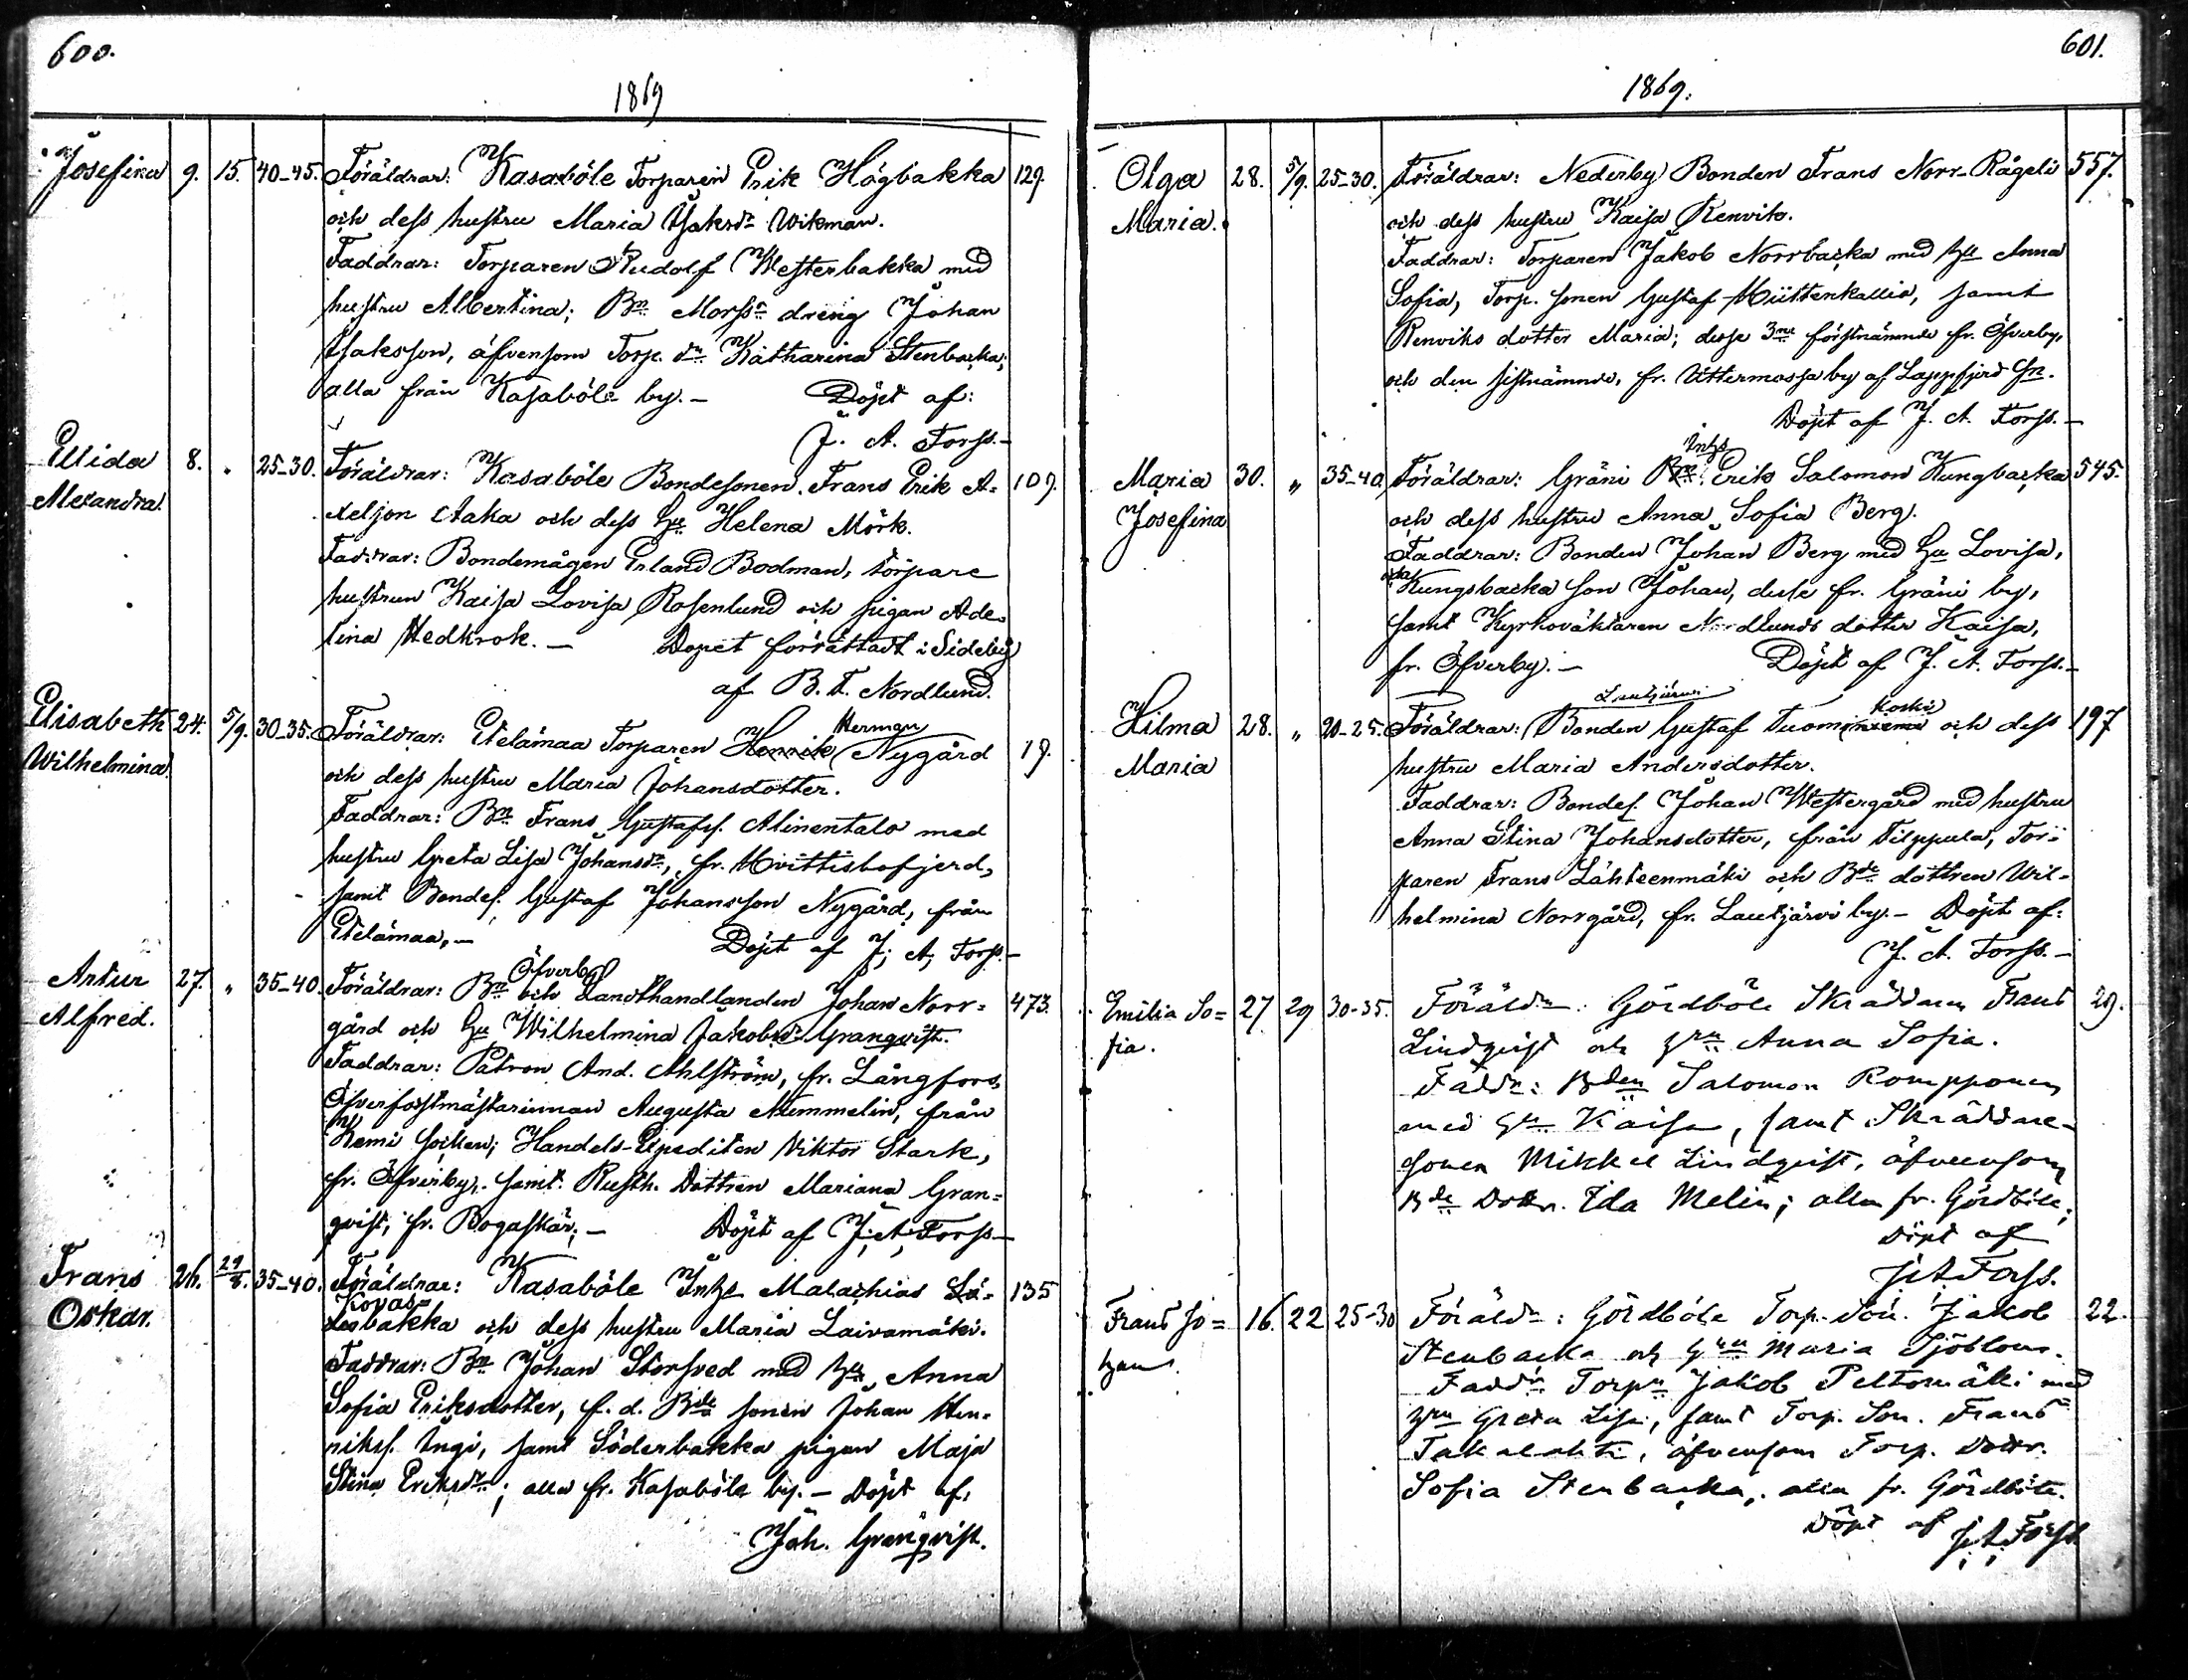 600.
1869
Josefina 9. 15. 40-45. Föräldrar: Kasaböle Torparen Erik Högbakka 129.
och dess hustru Maria Isaksdr Wikman.
Faddrar: Torparen Rudolf Westerbakka med
hustru Albertina; Bn Morss dreng Johan
Isaksson, äfvensom Torp. dr Katharina Stenbacka;
alla från Kasaböle by.— Döpt af:
J. A. Forss.—
Ellida 8. " 25-30. Föräldrar: Kasaböle Bondesonen Frans Erik A- 109.
Alexandra. xelson Aaka och dess Hu Helena Mörk.
Faddrar: Bondemågen Erland Bodman, torpare
hustrun Kaisa Lovisa Rosenlund och pigan Ade-
lina Hedkrok.— Dopet förrättadt i Sideby
af B. T. Nordlund.
Elisabeth 24. 5/9. 30-35. Föräldrar: Etelämaa Torparen Henrik Herman Nygård 19.
Wilhelmina. och dess hustru Maria Johansdotter.
Faddrar: Bn Frans Gustafs. Alinentalo med
hustru Greta Lisa Johansdr, fr. Hvittisbofjerd,
samt Bondes. Gustaf Johansson Nygård, från
Etelämaa,— Döpt af J. A. Forss.—
Öfverby
Artur 27. " 35-40. Föräldrar: Bn och Landthandlanden Johan Norr- 473.
Alfred. gård och Hu Wilhelmina Jakobsdr Granqvist.
Faddrar: Patron And. Ahlström, fr. Långfors,
Öfverforstmästarinnan Augusta Mummelin, från
Kemi socken; Handels-Expediten Viktor Stark,
fr. Öfverby, samt Rusth. Dottren Mariana Gran-
qvist, fr. Bogaskär;— Döpt af J. A. Forss—
Frans 26. 29/8. 35-40. Föräldrar: Kasaböle Inhs Malachias Lä- 135
Kovas-
Oskar. desbakka och dess hustru Maria Laivamäki.
Faddrar: Bn Johan Storsved med hu Anna
Sofia Eriksdotter, f. d. Bde sonen Johan Hen-
riks. Ingi, samt Söderbakka pigan Maja
Stina Eriksdr; alla fr. Kasaböle by.— Döpt af:
Joh. Granqvist.
601.
1869.
Olga 28. 5/9. 25-30. Föräldrar: Nederby Bonden Frans Norr-Rågeli 557.
Maria. och dess hustru Kaisa Renvik.
Faddrar: Torparen Jakob Norrbacka med hu Anna
Sofia, Torp. sonen Gustaf Hiittenkallio, samt
Renviks dotter Maria; desse 3ne förstnämnde fr. Öfverby,
och den sistnämnde, fr. Uttermossa by af Lappfjerd Sn.
Döpt af J. A. Forss.—
Inhs
Maria 30. " 35-40. Föräldrar: Gräni Bn Erik Salomon Kungbacka 545.
Josefina och dess hustru Anna Sofia Berg.
Faddrar: Bonden Johan Berg med Hu Lovisa,
Kungsbacka son Johan, desse fr. Gräni by,
samt Kyrkoväktaren Nordlunds dotter Kaisa,
fr. Öfverby.— Döpt af J. A. Forss.—
Lautjärvi
Hilma 28. " 20-25. Föräldrar: Bonden Gustaf Tuominiemi koski och dess 197
Maria hustru Maria Andersdotter.
Faddrar: Bondes. Johan Westergård med hustru
Anna Stina Johansdotter, från Tilppula, Tor-
paren Frans Lähteenmäki och Bde dottren Wil-
helmina Norrgård, fr. Lautjärvi by.— Döpt af:
J. A. Forss.—
Emilia So= 27 29 30-35. Föräldr: Gördböle Skräddaren Frans 29.
fia. Lindqvist och hun Anna Sofia.
Faddr: Bden Salomon Rompponen
med hu Kaisa, samt Skräddare-
sonen Mikkel Lindqvist, äfvensom
Bde Dottr. Ida Melin; alla fr. Gördböle;
Döpt af
J A Forss.
Frans Jo= 16. 22 25-30 Föräldr: Gördböle Torp. Son. Jakob 22.
han. Stenbacka och hun Maria Sjöblom.
Faddr: Torpn Jakob Peltomäki med
hun Greta Lisa, samt Torp. Son. Frans
Takalahti, äfvensom Torp. Dottr.
Sofia Stenbacka, alla fr. Gördböle.
Döpt af J. A. Forss.